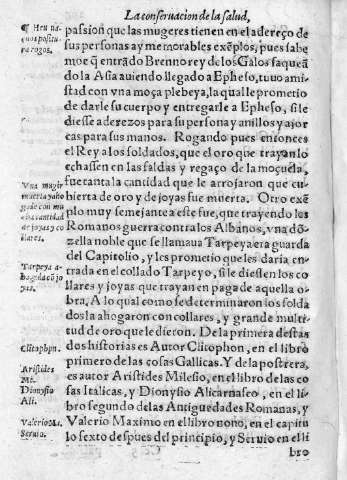 La conseruacion de la salud,
passion que las mugeres tienen en el adereço de
sus personas ay memorables exẽplos, pues sabe
mos q̃ entrãdo Brenno rey de los Galos saqueã
do la Asia auiendo llegado a Epheso, tuuo ami
stad con vna moça plebeya, la qual le prometio
de darle su cuerpo y entregarle a Epheso, si le
diesse aderezos para su persona y anillos y ajor
cas para sus manos. Rogando pues entonces
el Rey a los soldados, que el oro que trayan lo
echassen en las faldas y regaço de la moçuela,
fue tanta la cantidad que le arrojaron que cu-
bierta de oro y de joyas fue muerta. Otro exẽ
plo muy semejante a este fue, que trayendo los
Romanos guerra contra los Albanos, vna dõ
zella noble que se llamaua Tarpeya era guarda
del Capitolio, y les prometio que les daria en-
trada en el collado Tarpeyo, si le diessen los co
llares y joyas que trayan en paga de aquella o-
bra. A lo qual como se determinaron los solda
dos la ahogaron con collares, y grande multi
tud de oro que le dieron. De la primera destas
dos historias es Autor Clitophon, en el libro
primero de las cosas Gallicas. Y de la postrera,
es autor Aristides Milesio, en el libro de las co-
sas Italicas, y Dionysio Alicarnaseo, en el li-
bro segundo de las Antiguedades Romanas, y
Valerio Maximo en el libro nono, en el capitu
lo sexto despues del principio, y Seruio en el li
bro
¶ Heu na
quos positu-
ra rogos.
Vna muger
muerta y aho
gada con mu
cha cantidad
de joyas y co
llares.
Tarpeya a-
hogada cõ jo
yas.
Clitophon.
Aristides
Mi.
Dionysio
Ali.
Valerio Ma.
Seruio.